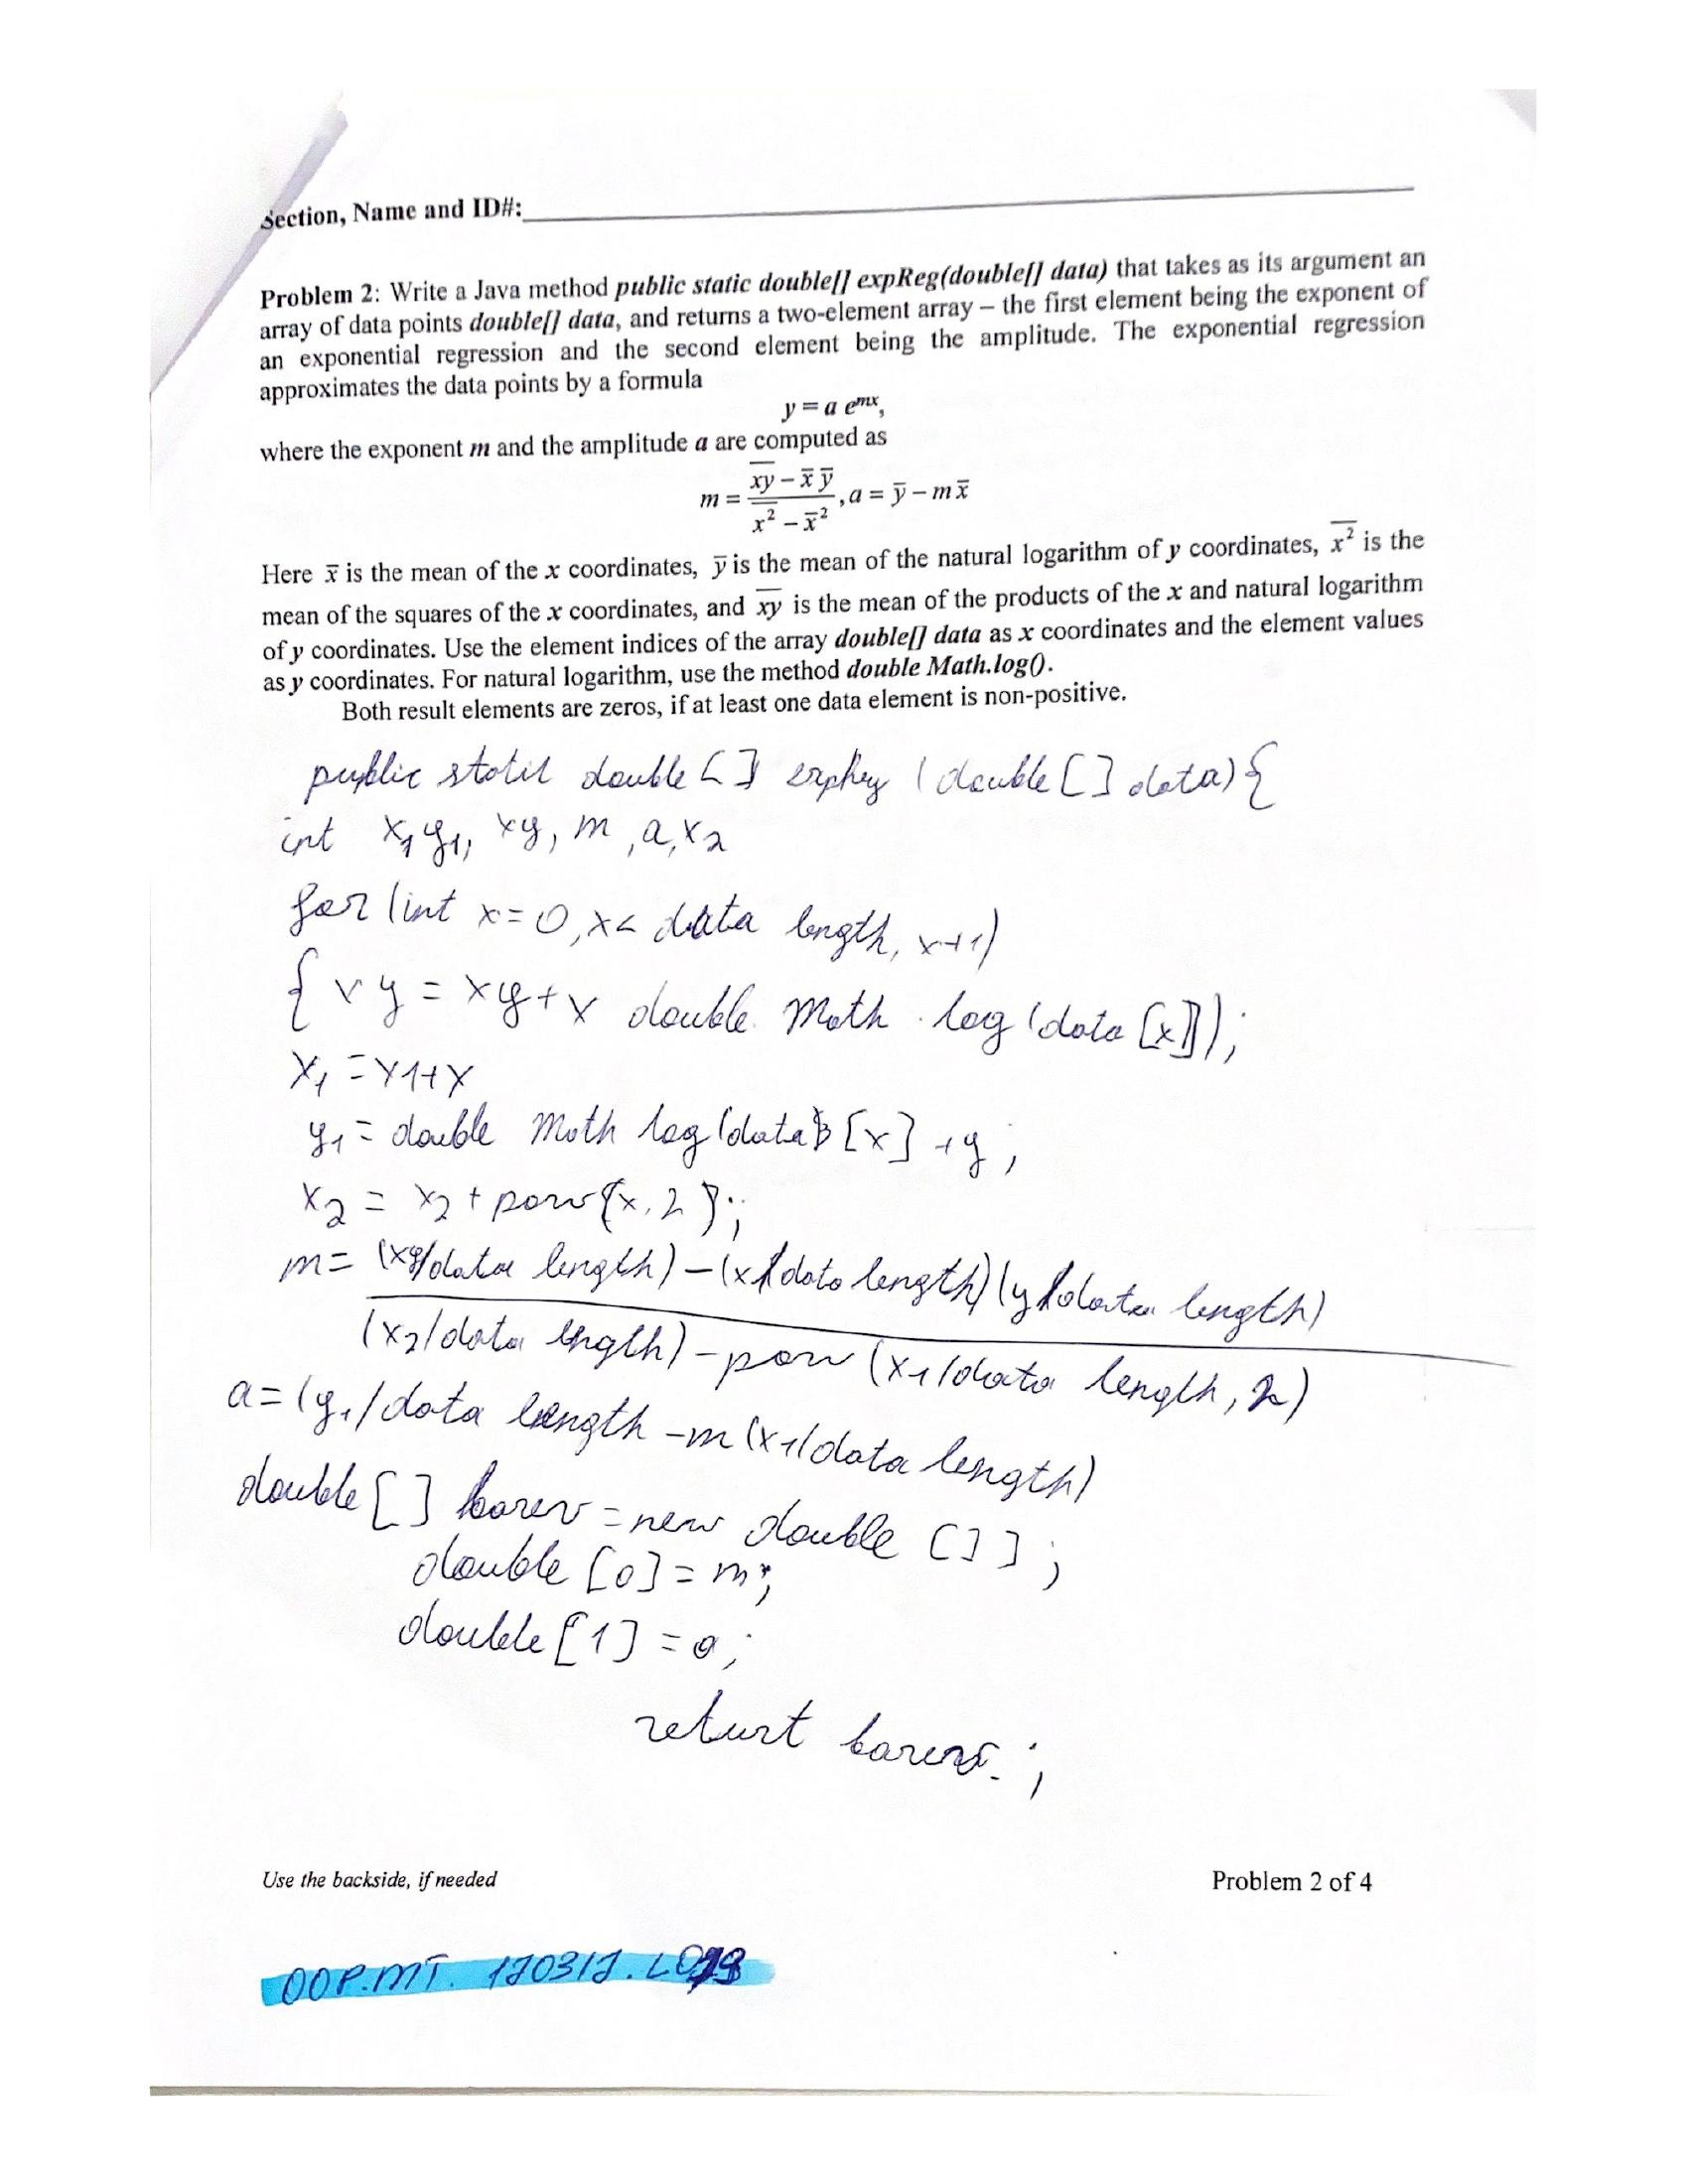 Section, Name and ID#:
Problem 2: Write a Java method public static double[] expReg(double[] data) that takes as its argument an
array of data points double[] data, and returns a two-element array – the first element being the exponent of
an exponential regression and the second element being the amplitude. The exponential regression
approximates the data points by a formula
y = a e^{mx},
where the exponent m and the amplitude a are computed as
m = \frac{\overline{xy} - \bar{x}\,\bar{y}}{\overline{x^2} - \bar{x}^2}, a = \bar{y} - m\bar{x}
Here x̄ is the mean of the x coordinates, ȳ is the mean of the natural logarithm of y coordinates, \overline{x^2} is the
mean of the squares of the x coordinates, and \overline{xy} is the mean of the products of the x and natural logarithm
of y coordinates. Use the element indices of the array double[] data as x coordinates and the element values
as y coordinates. For natural logarithm, use the method double Math.log().
Both result elements are zeros, if at least one data element is non-positive.
public static double [] expReg (double [] data) {
int x1 y1, xy, m, a, x2
for (int x=0, x< data length, x++)
{ xy = xy+x double Math . log (data [x]);
x1 = x1+x
y1 = double Math log (data) [x] + y ;
x2 = x2 + pow (x, 2 );
m = (xy/data length) – (x1/data length) (y1/data length)
(x2/data length) – pow (x1/data length, 2)
a = (y1/data length – m (x1/data length)
double [] = new double [ ] ] ;
double [0] = m ;
double [1] = a ;
return ;
Use the backside, if needed
Problem 2 of 4
OOP.MT.